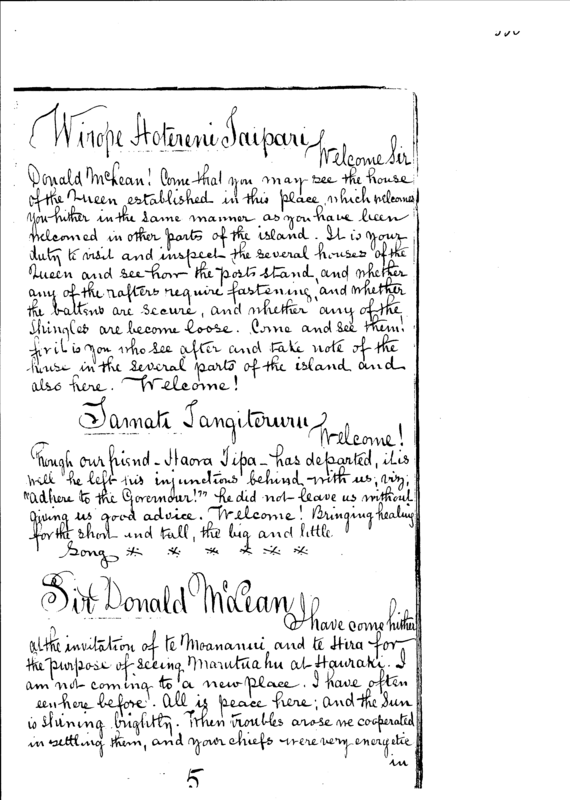 Wirope Hotereni Taipari Welcome Sir
Donald McLean! Come that you may see the house
of the Queen established in this place, which welcomes
you hither in the same manner as you have been
welcomed in other parts of the island. It is your
duty to visit and inspect the several houses of the
Queen and see how the posts stand, and whether
any of the rafters require fastening, and whether
the battens are secure, and whether any of the
shingles are become loose. Come and see them!
for it is you who see after and take note of the
house in the several parts of the island and
also here. Welcome!
Tamati Tangiteruru Welcome!
Though our friend - Haora Tipa - has departed, it is
well he left his injunctions behind with us, viz;
"adhere to the Governour!" he did not leave us without
giving us good advice. Welcome! Bringing healing
for the short and tall, the big and little.
Song * * * * * *
Sir Donald McLean I have come hither
at the invitation of te Moananui and te Hira for
the purpose of seeing Marutuahu at Hauraki. I
am not coming to a new place. I have often
een here before. All is peace here; and the Sun
is shining brightly. When troubles arose we cooperated
in settling them, and your chiefs were very energetic
in
5